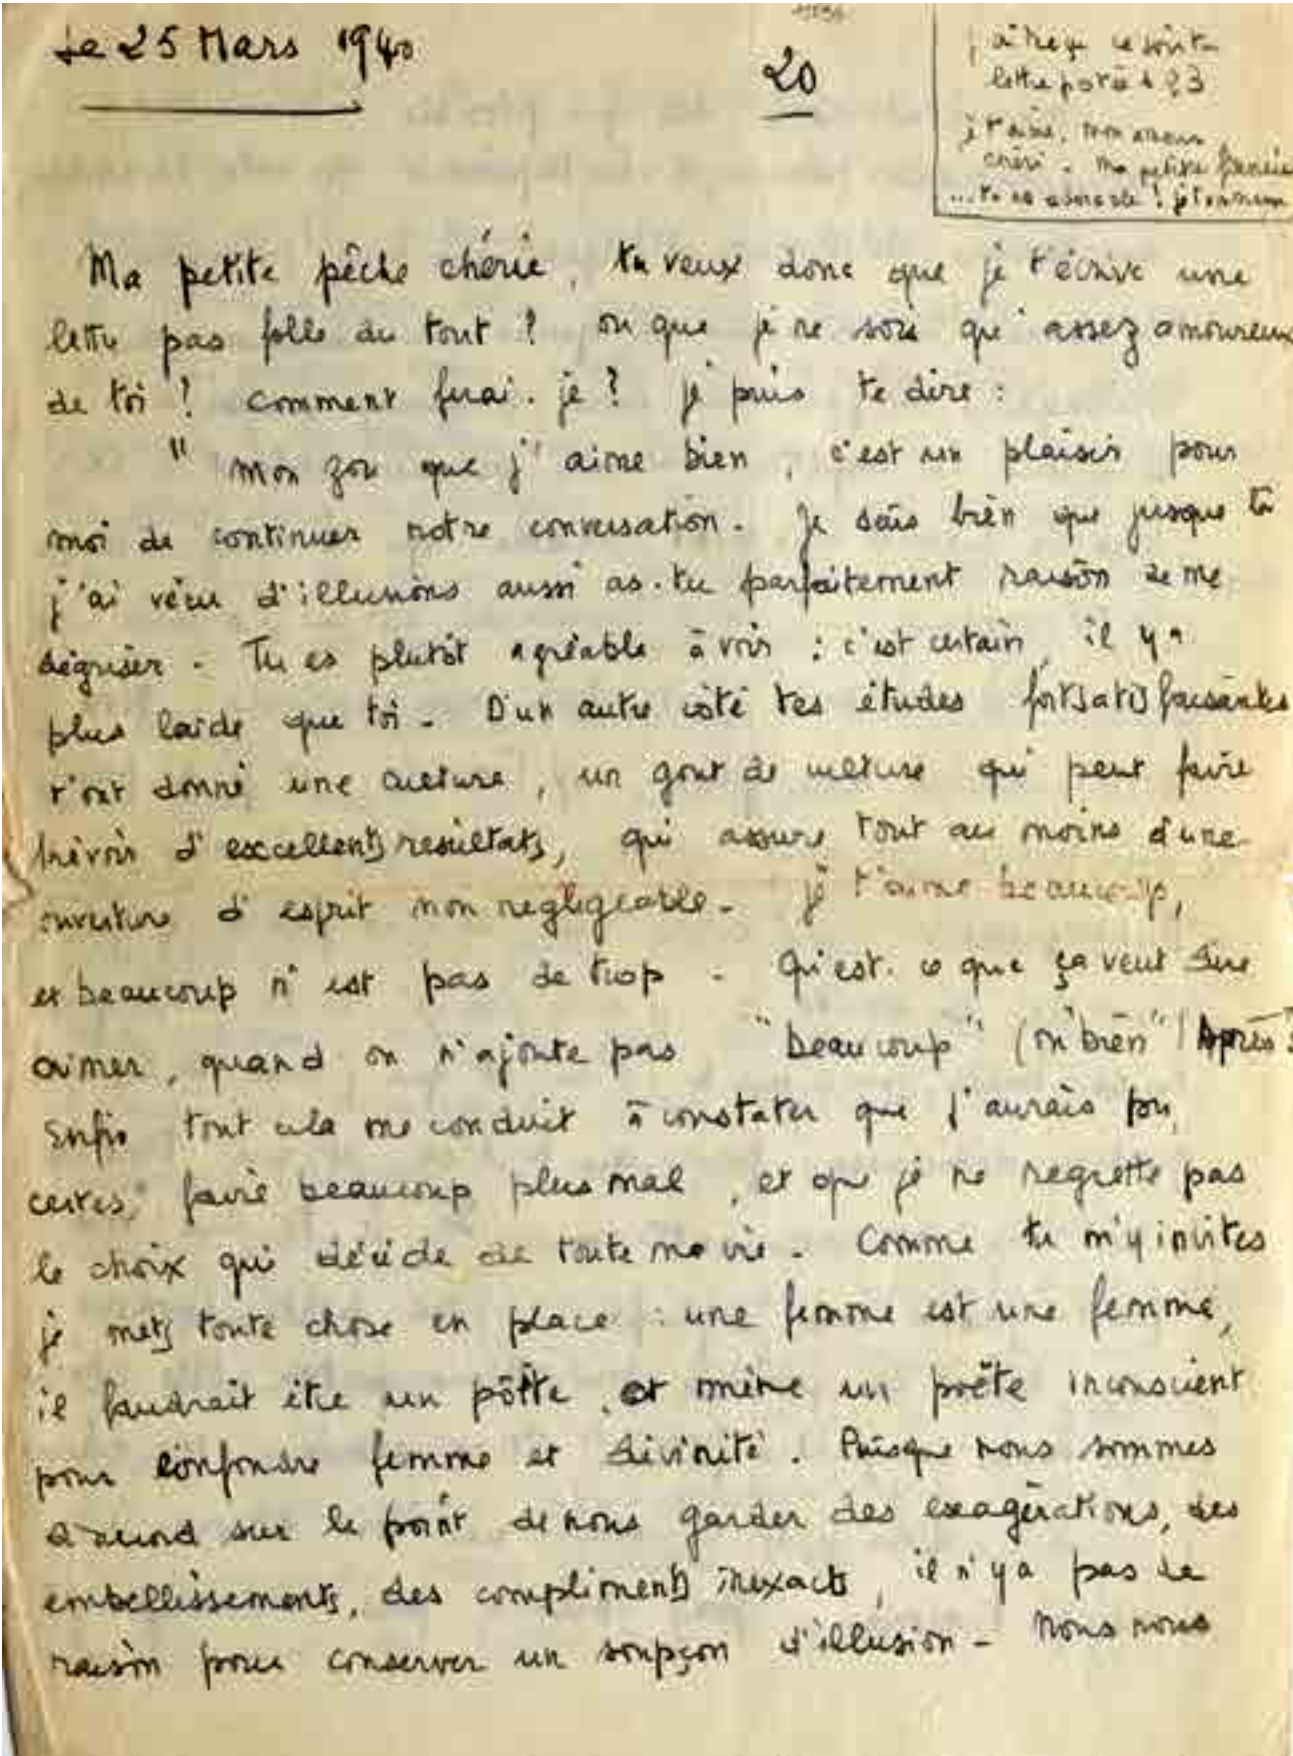 Le 25 Mars 1940
20
j'ai reçu ce soir ta
lettre postée le 23
je t'aime, mon amour
chéri. ma petite fiancée
... tu es adorable !
Ma petite pêche chérie, tu veux donc que je t'écrive une
lettre pas folle du tout ? ou que je ne sois qu'assez amoureux
de toi ? comment ferai-je ? je puis te dire :
" mon zou que j'aime bien, c'est un plaisir pour
moi de continuer notre conversation. je sais bien que jusque là
j'ai vécu d'illusions aussi as-tu parfaitement raison de me
dégriser. Tu es plutôt agréable à voir : c'est certain, il y a
plus laide que toi. D'un autre côté tes études fort satisfaisantes
t'ont donné une culture, un gout de culture qui peut faire
prévoir d'excellents resultats, qui assure tout au moins d'une
ouverture d'esprit non negligeable. je t'aime beaucoup,
et beaucoup n'est pas de trop. Qu'est-ce que ça veut dire
aimer, quand on n'ajoute pas "beaucoup" (ou "bien") Après ?
Enfin tout cela me conduit à constater que j'aurais pu,
certes, faire beaucoup plus mal, et que je ne regrette pas
le choix qui décide de toute ma vie. Comme tu m'y invites
je mets toute chose en place : une femme est une femme,
il faudrait être un pôëte, et même un poëte inconscient
pour confondre femme et divinité. Puisque nous sommes
d'accord sur le point de nous garder des exagérations, des
embellissements, des compliments inexacts, il n'y a pas de
raison pour conserver un soupçon d'illusion - nous nous